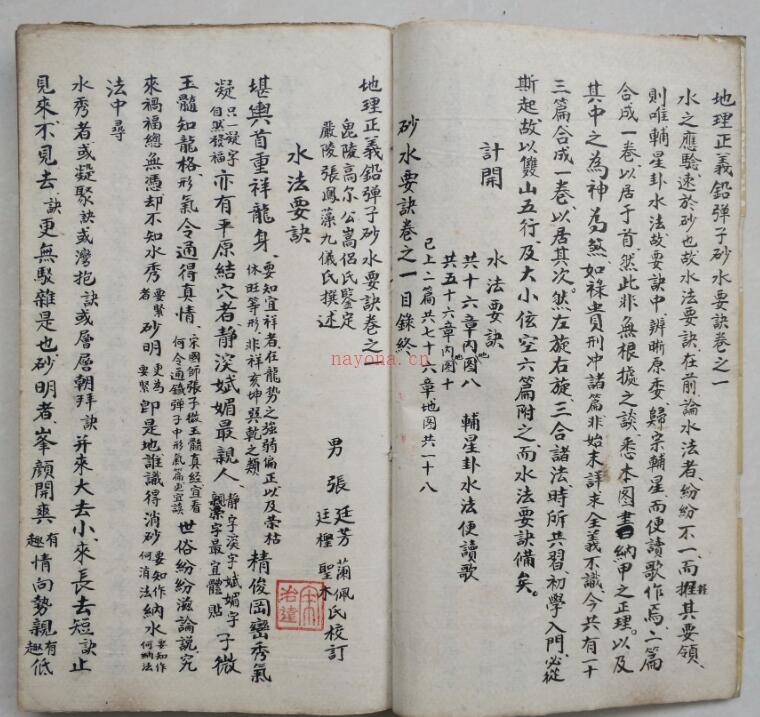 地理正義鉛彈子砂水要訣卷之一
水之應驗速於砂也故水法要訣在前論水法者紛紛不一而握其要領
則唯輔星卦水法故要訣中辨晰原委歸宗輔星而便讀歌作焉二篇
合成一卷以居于首然此非無根據之談悉本图書納甲之正理以及
其中之為神為煞如祿貴刑冲諸篇非始末詳求全義不識今共有一十
三篇合成一卷以居其次然左旋右旋三合諸法時所共習初學入門必從
斯起故以雙山五行及大小玄空六篇附之而水法要訣備矣
計開
水法要訣
共十六章內图八
輔星卦水法便讀歌
共五十六章內图十
已上二篇共七十六章地图共一十八
砂水要訣卷之一目錄終
地理正義鉛彈子砂水要訣卷之一
毘陵高尔公嵩侶氏鑒定
嚴陵張鳳藻九儀氏撰述
男張廷芳蘭佩氏校訂
廷樫聖木
水法要訣
堪輿首重祥龍身要知宜祥者在龍勢之強弱偏正以及荣枯休旺等形非祥亥坤巽乾之類精俊岡巒秀氣
凝只一凝字自然發福亦有平原結穴者靜深娬媚最親人靜字深字娬媚字親字最宜體貼子微
玉髓知龍格形氣令通得真情宋國師張子微玉髓真經宜看何令通鐵彈子中形氣篇更宜讀世俗紛紛滋論說究
來禍福總無憑却不知水秀者要緊砂明更為要緊即是地誰識得消砂要知作何消法納水要知作何納法
法中尋
水秀者或凝聚訣或灣抱訣或層層朝拜訣并來大去小來長去短訣止
見來不見去訣更無駁雜是也砂明者峯顔開爽有趣情向勢親有趣低
宋治達
nayona.cn